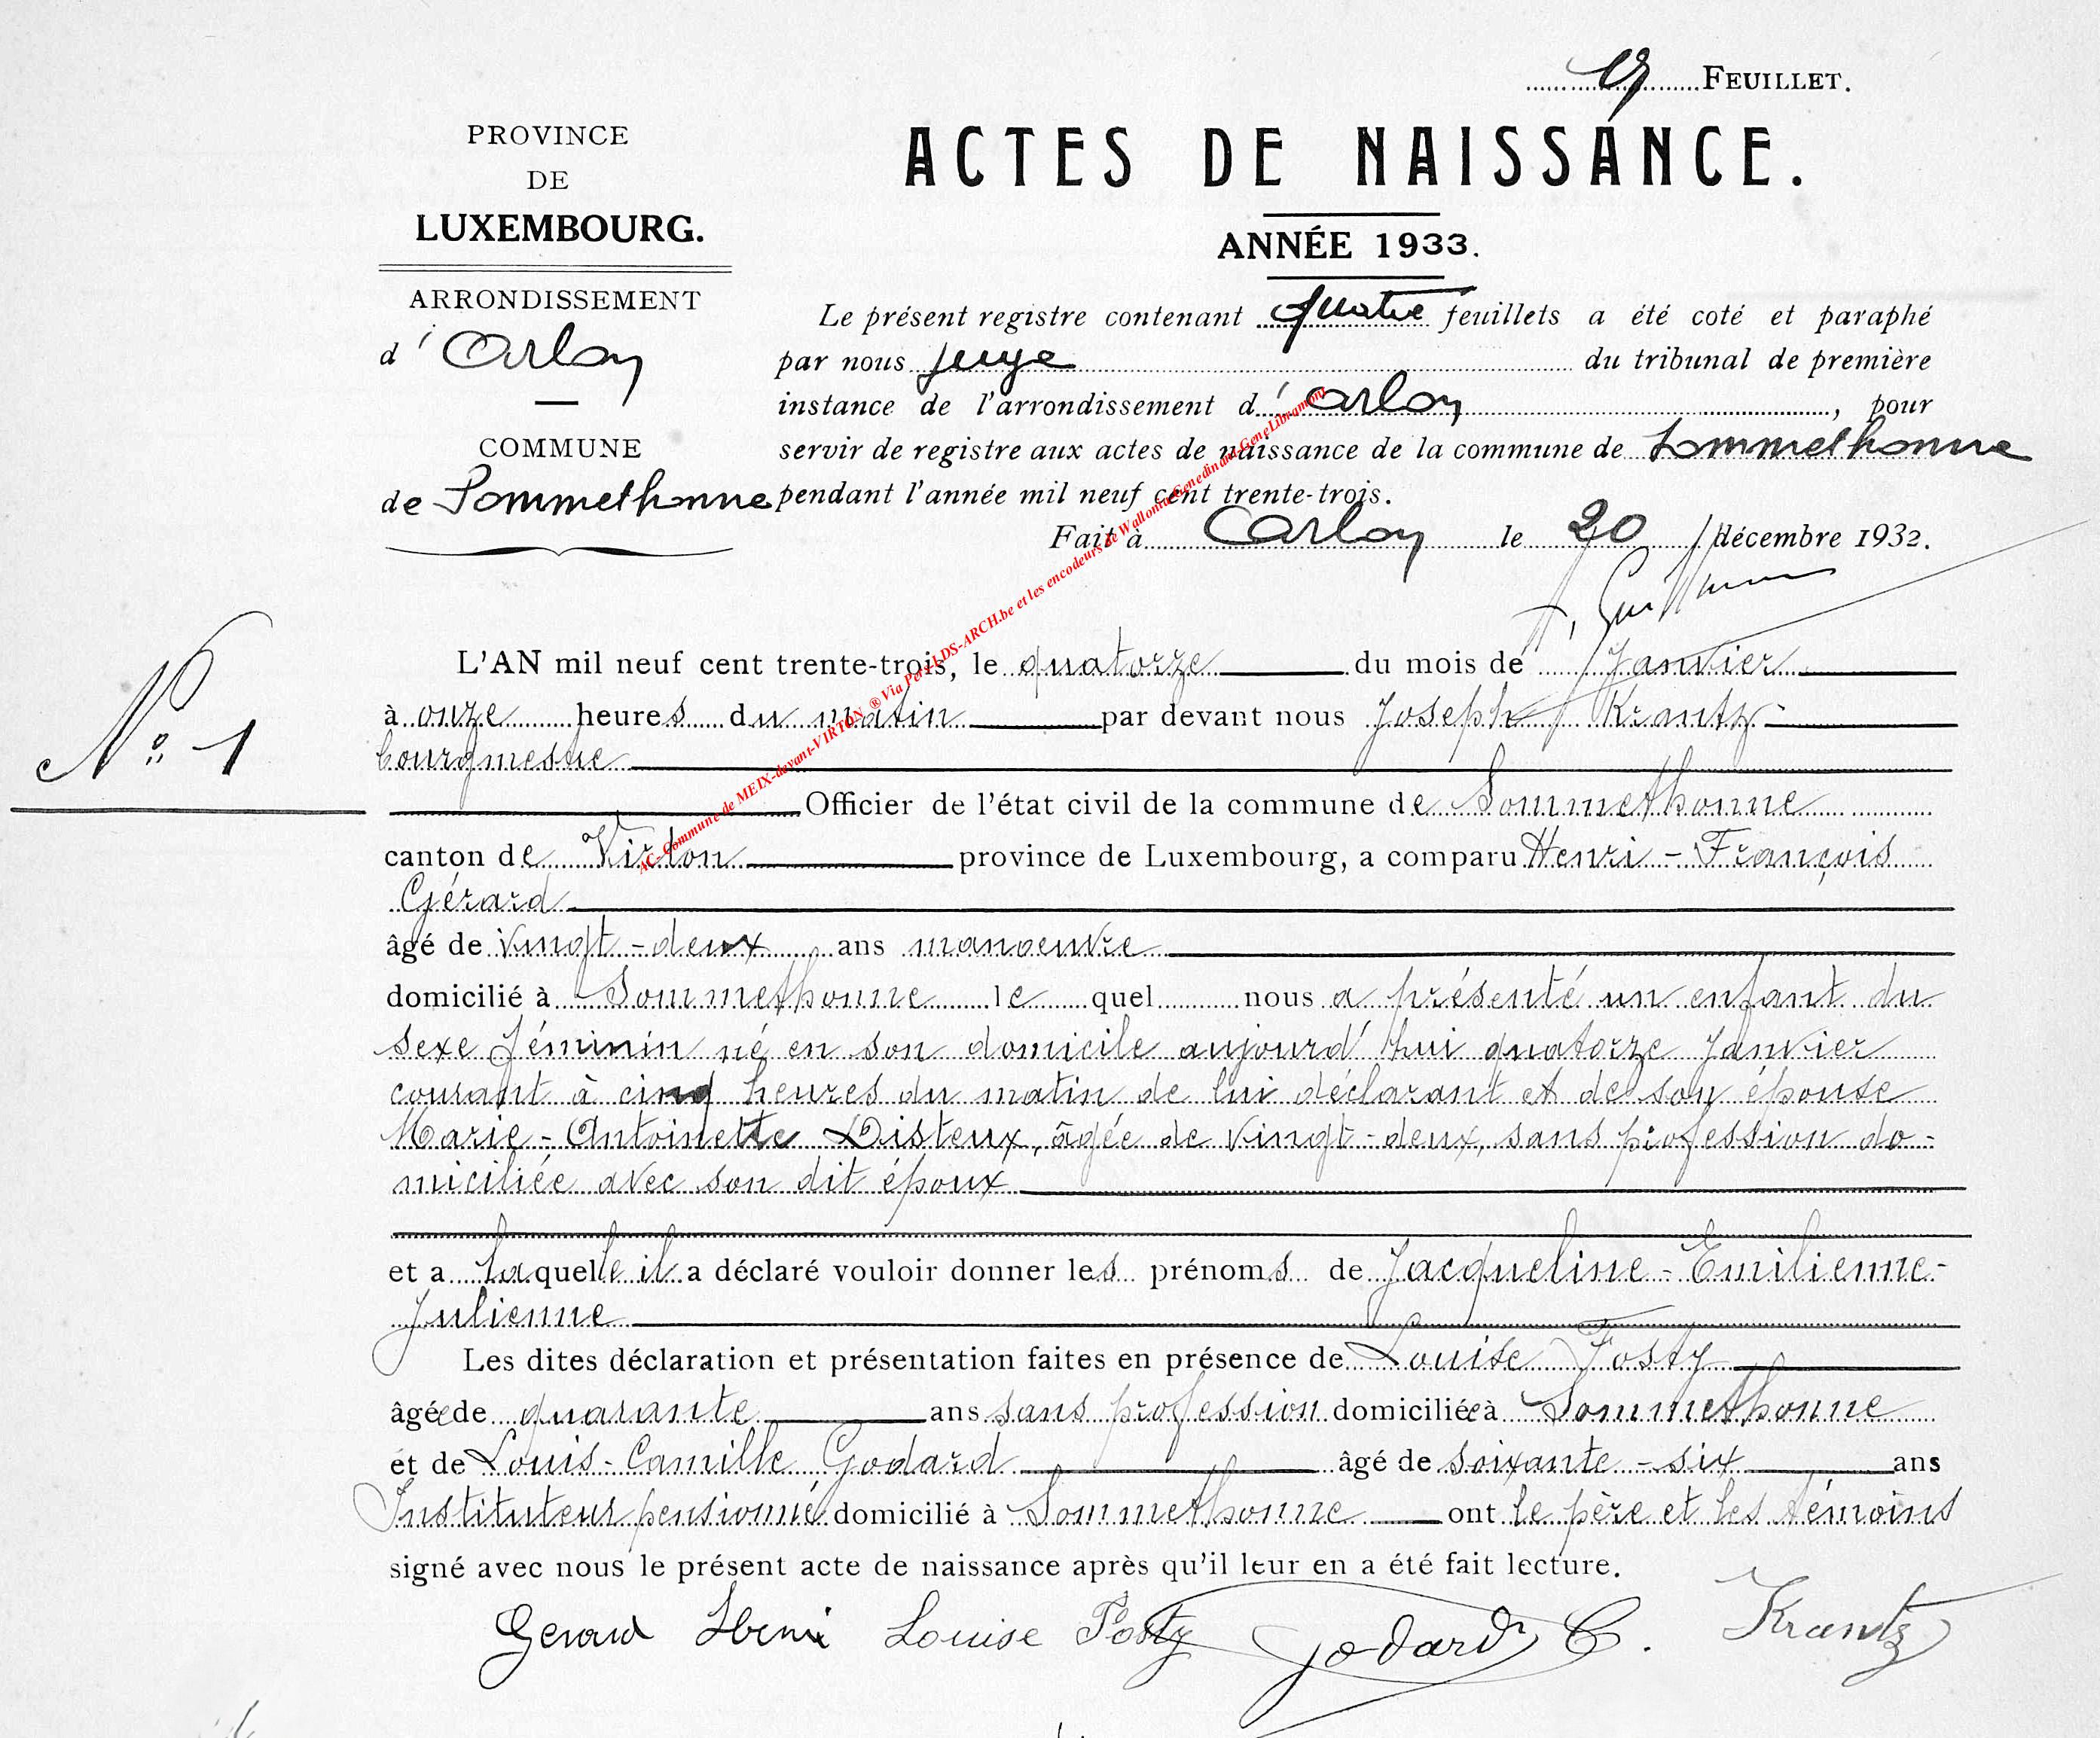 FEUILLET.
PROVINCE
DE
LUXEMBOURG.
ARRONDISSEMENT
d'Arlon
COMMUNE
de Sommethonne
ACTES DE NAISSANCE.
ANNÉE 1933.
Le présent registre contenant quatre feuillets a été coté et paraphé
par nous juge du tribunal de première
instance de l'arrondissement d'Arlon, pour
servir de registre aux actes de naissance de la commune de Sommethonne
pendant l'année mil neuf cent trente-trois.
Fait à Arlon le 20 décembre 1932.
N° 1
L'AN mil neuf cent trente-trois, le quatorze du mois de Janvier
à onze heures du matin par devant nous Joseph Krantz
bourgmestre
Officier de l'état civil de la commune de Sommethonne
canton de Virton province de Luxembourg, a comparu Henri-François
Gérard
âgé de vingt-deux ans manoeuvre
domicilié à Sommethonne lequel nous a présenté un enfant du
sexe féminin né en son domicile aujourd'hui quatorze Janvier
courant à cinq heures du matin de lui déclarant et de son épouse
Marie-Antoinette Disteux, âgée de vingt-deux, sans profession do-
miciliée avec son dit époux
et a laquelle il a déclaré vouloir donner les prénoms de Jacqueline-Emilienne-
Julienne
Les dites déclaration et présentation faites en présence de Louise Fosty
âgée de quarante ans sans profession domiciliée à Sommethonne
et de Louis-Camille Godard âgé de soixante-six ans
Instituteur pensionné domicilié à Sommethonne ont le père et les témoins
signé avec nous le présent acte de naissance après qu'il leur en a été fait lecture.
Gerard Henri Louise Fosty Godard C. Krantz
AC- Commune de MEIX-devant-VIRTON ® Via Pers-LDS-ARCH.be et les encodeurs de Wallonia-Genedinant-GeneLibramont